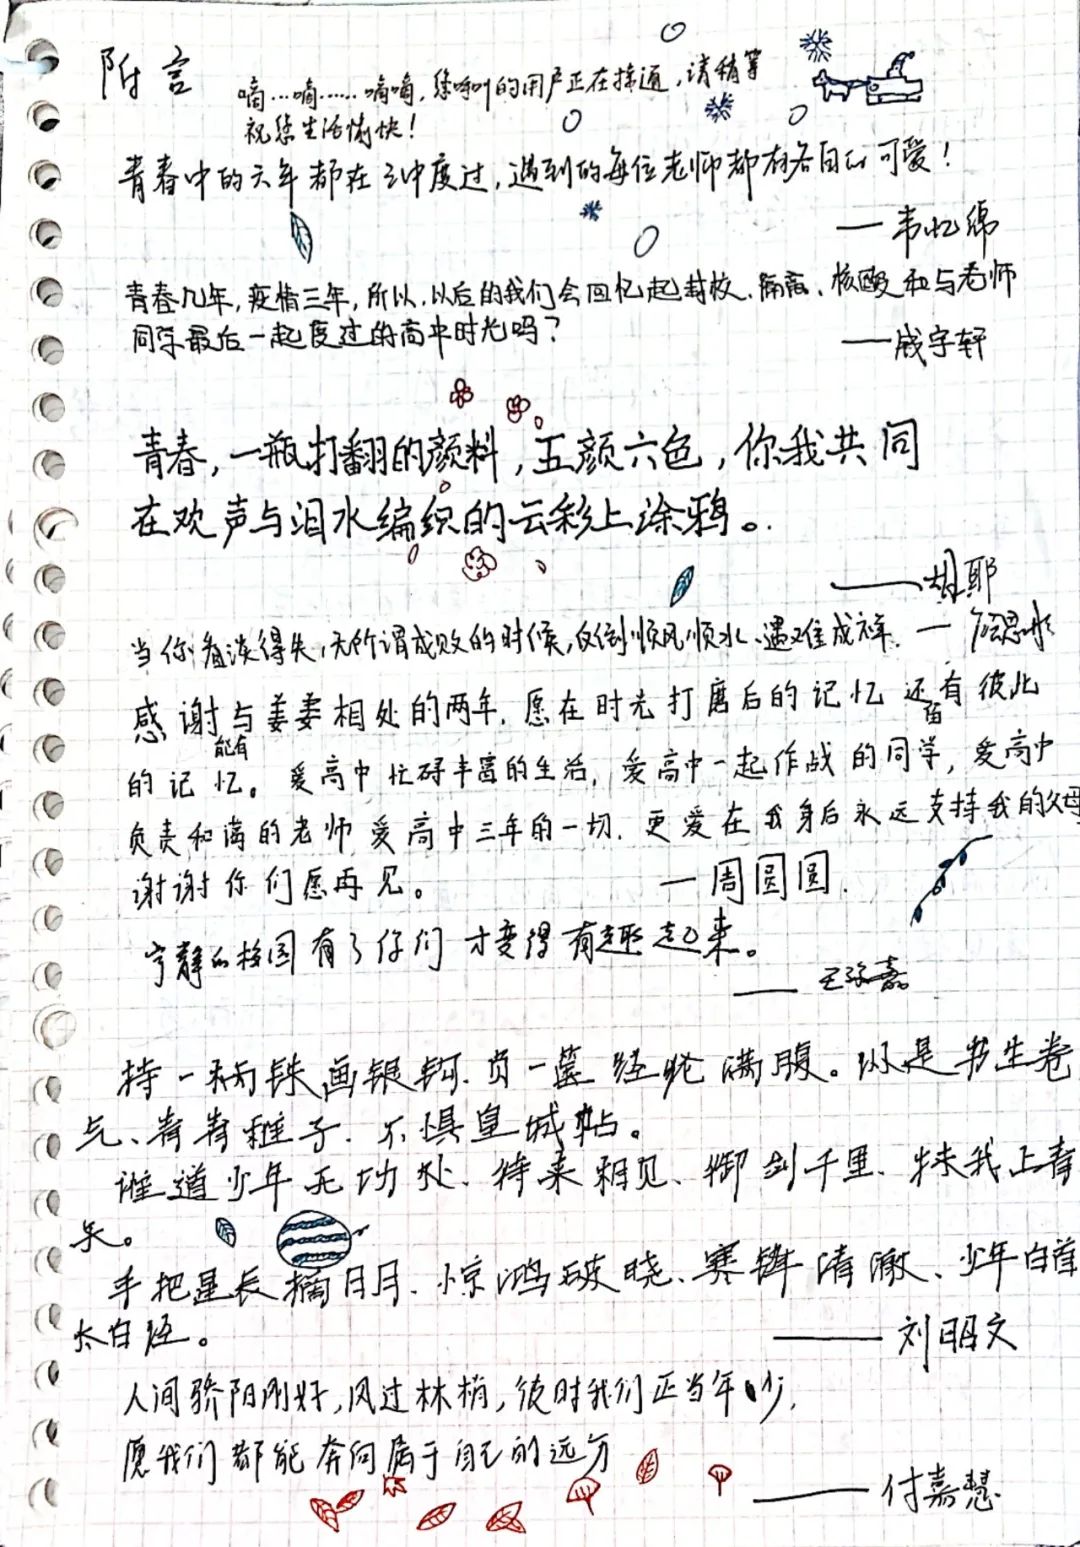 附言
嘀…嘀……嘀嘀，您呼叫的用户正在接通，请稍等
祝您生活愉快！
青春中的六年都在三中度过，遇到的每位老师都有各自的可爱！
—韦忆绵
青春几年，疫情三年，所以，以后的我们会回忆起封校、隔离、核酸和与老师
同学最后一起度过的高中时光吗？
——戚宇轩
青春，一瓶打翻的颜料，五颜六色，你我共同
在欢声与泪水编织的云彩上涂鸦。
——胡耶
当你看淡得失，无所谓成败的时候，反倒顺风顺水、遇难成祥。—思
感谢与姜姜相处的两年，愿在时光打磨后的记忆还有彼此
能有
的记忆。爱高中忙碌丰富的生活，爱高中一起作战的同学，爱高中
负责和蔼的老师 爱高中三年的一切，更爱在我身后永远支持我的父母
谢谢你们愿再见。 —周圆圆
宁静的校园有了你们才变得有趣起来。
——王嘉
持一柄铁画银钩、负一箧经纶满腹。既是书生卷
气、青青稚子、不惧皇城帖。
谁道少年无功处、待来相见、御剑千里、扶我上青
天。
手把星辰摘日月、惊鸿破晓、寒锋清澈、少年白首
太白经。
——刘明文
人间骄阳刚好，风过林梢，彼时我们正当年少，
愿我们都能奔向属于自己的远方
——付嘉慧